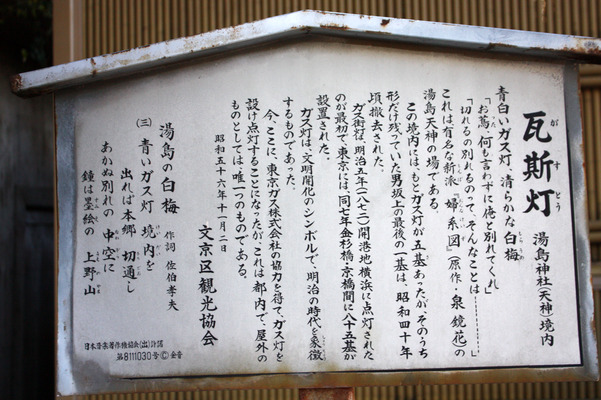 瓦斯灯
がすとう
湯島神社(天神)境内
青白いガス灯、清らかな白梅
しらうめ
「お蔦、何も言わずに俺と別れてくれ」
つた
「切れるの別れるのって、そんなことは……」
これは有名な新派「婦系図」(原作・泉鏡花)の
湯島天神の場である。
この境内にはもとガス灯が五基あったが、そのうち
形だけ残っていた男坂上の最後の一基は、昭和四十年
頃撤去された。
ガス街灯は、明治五年(一八七二)開港地横浜に点灯された
のが最初で、東京には、同七年金杉橋・京橋間に八十五基が
設置された。
ガス灯は、文明開化のシンボルで、明治の時代を象徴
するものであった。
今、ここに、東京ガス株式会社の協力を得て、ガス灯を
設け点灯することになったが、これは都内で、屋外の
ものとしては唯一つのものである。
昭和五十六年十一月二日
文京区観光協会
湯島の白梅 作詞 佐伯孝夫
(三) 青いガス灯 境内を
出れば本郷 切通し
あかぬ別れの 中空に
鐘は墨絵の 上野山
日本音楽著作権協会(出)許諾
第8111030号